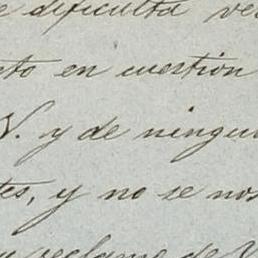 e dificulta ve
cto en cuestion
V. y de ningu
tes, y no se nos
reclamo de V